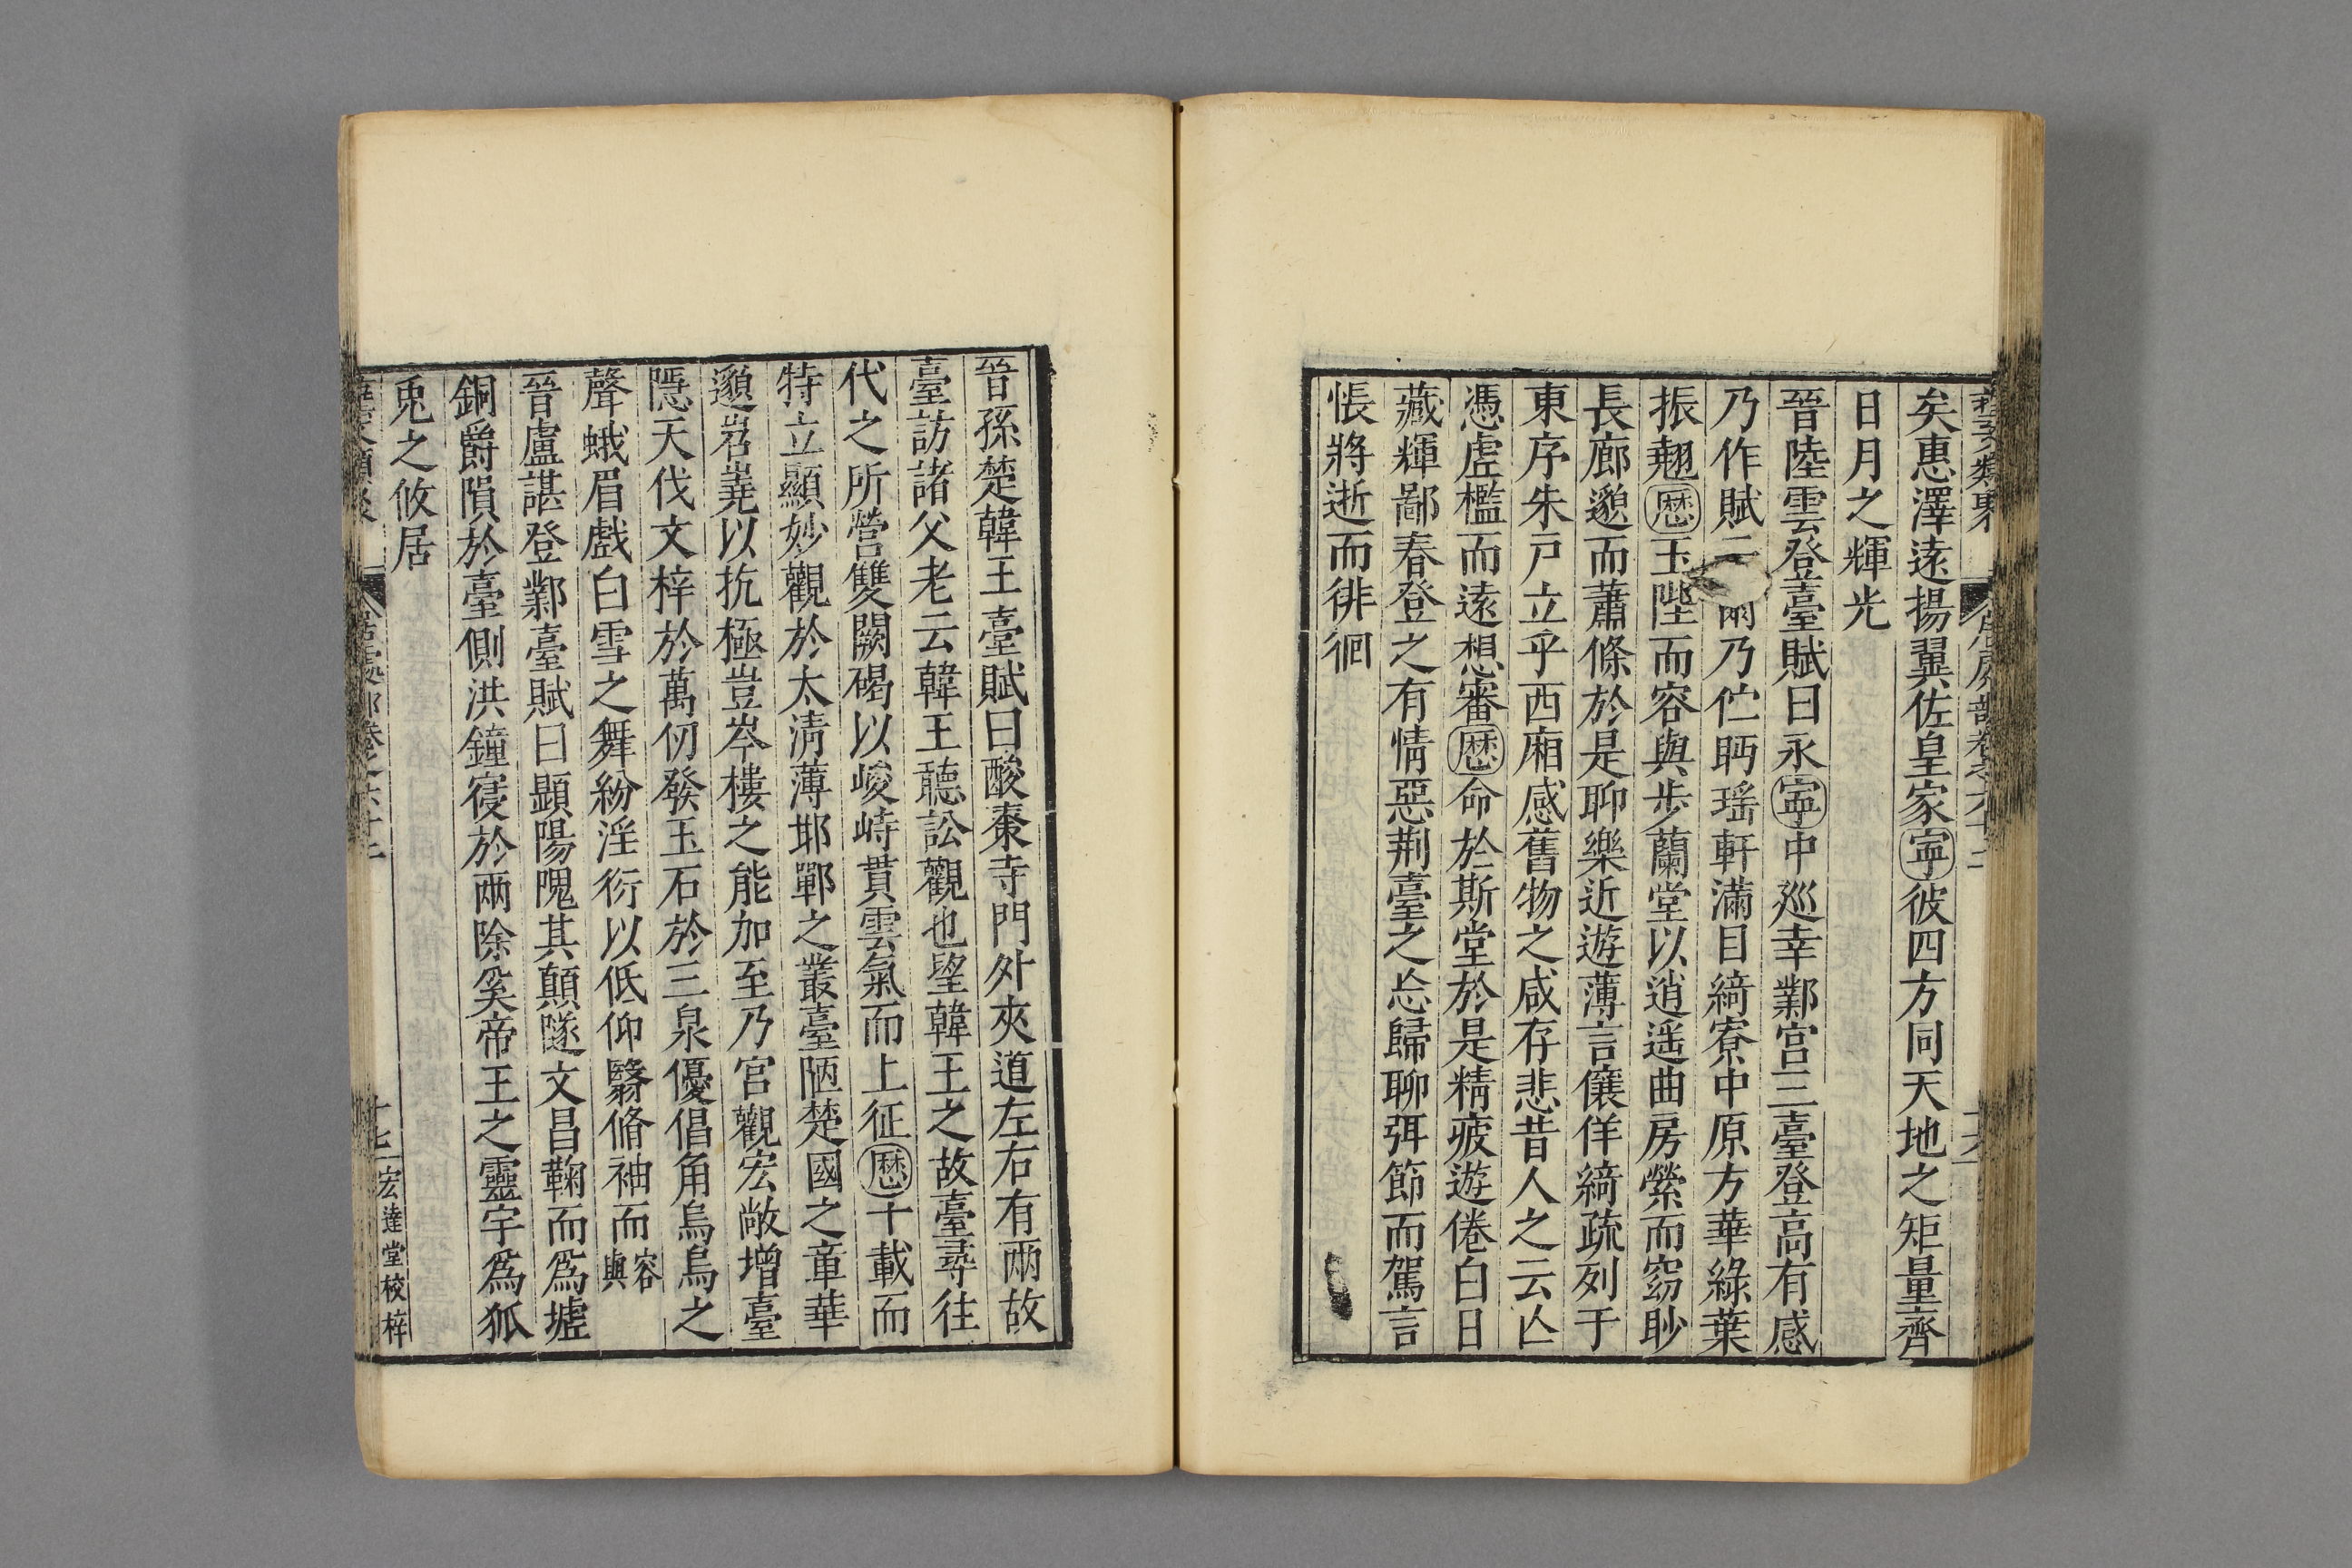 矣惠澤遠揚翼佐皇家寧彼四方同天地之矩量齊
日月之輝光
晉陸雲登臺賦曰永寧中廵幸鄴宫三臺登高有感
乃作賦云爾乃伫眄瑶軒滿目綺寮中原方華綠葉
振翹歴玉陛而容與步蘭堂以逍遥曲房縈而窈眇
長廊邈而蕭條於是聊樂近遊薄言儴佯綺疏列于
東序朱戸立乎西廂感舊物之咸存悲昔人之云亾
憑虚檻而遠想審歴命於斯堂於是精疲遊倦白日
藏輝鄙春登之有情惡荆臺之忘歸聊弭節而駕言
悵將逝而徘徊
晉孫楚韓王臺賦曰酸棗寺門外夾道左右有兩故
臺訪諸父老云韓王聽訟觀也望韓王之故臺尋往
代之所營雙闕碣以峻峙貫雲氣而上征歴千載而
特立顯妙觀於太淸薄邯鄲之叢臺陋楚國之章華
邈岧嶤以抗極豈岑樓之能加至乃宫觀宏敞增臺
隱天伐文梓於萬仞發玉石於三泉優倡角烏烏之
聲蛾眉戲白雪之舞紛淫衍以低仰翳脩袖而容與
晉盧諶登鄴臺賦曰顯陽隗其顛隧文昌鞠而爲墟
銅爵隕於臺側洪鐘寑於兩除奚帝王之靈宇爲狐
兎之攸居
十七
宏達堂校梓